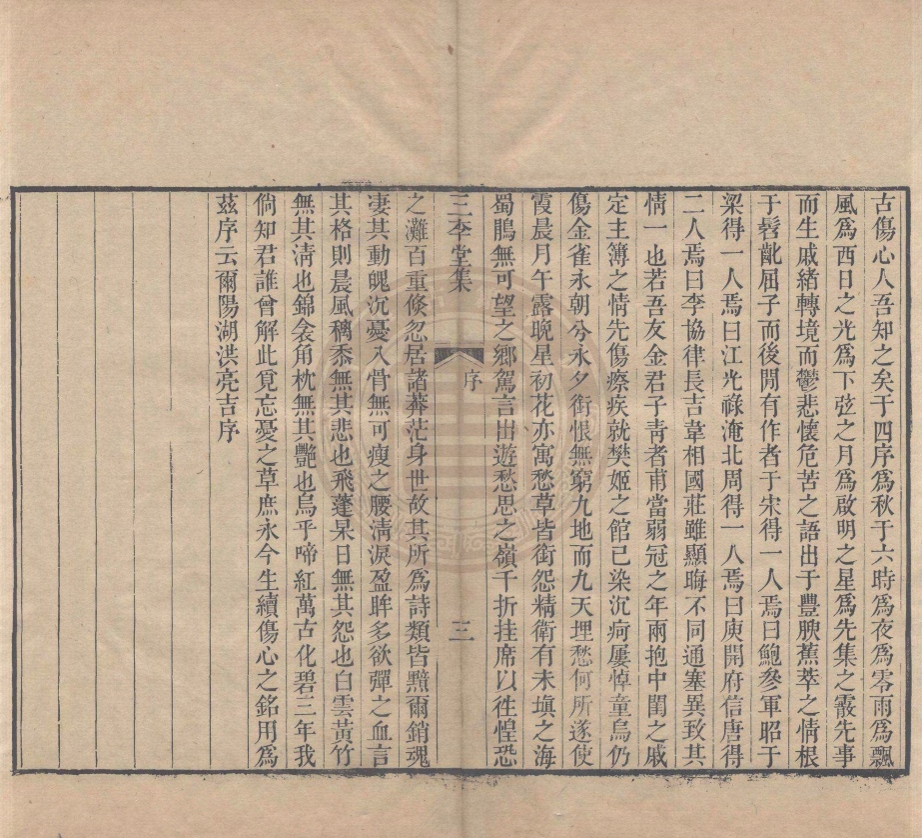 古傷心人吾知之矣于四序爲秋于六時爲夜爲零雨爲飄
風爲西日之光爲下弦之月爲啟明之星爲先集之霰先事
而生戚緒轉境而鬱悲懷危苦之語出于豐腴蕉萃之情根
于髫齔屈子而後閒有作者于宋得一人焉曰鮑參軍昭于
梁得一人焉曰江光祿淹北周得一人焉曰庾開府信唐得
二人焉曰李協律長吉韋相國莊雖顯晦不同通塞異致其
情一也若吾友金君子靑者甫當弱冠之年兩抱中閨之戚
定主簿之情先傷瘵疾就樊姬之館已染沉疴屢悼童烏仍
傷金雀永朝兮永夕銜恨無窮九地而九天埋愁何所遂使
霞晨月午露晚星初花亦寓愁草皆銜怨精衛有未塡之海
蜀鵑無可望之鄉駕言出遊愁思之嶺千折挂席以徃惶恐
三李堂集
序
三
之灘百重倏忽居諸莽茫身世故其所爲詩類皆黯爾銷魂
凄其動魄沉憂入骨無可瘦之腰淸淚盈眸多欲彈之血言
其格則晨風穉黍無其悲也飛蓬杲日無其怨也白雲黃竹
無其淸也錦衾角枕無其艷也烏乎啼紅萬古化碧三年我
倘知君誰曾解此覓忘憂之草庶永今生續傷心之銘用爲
茲序云爾陽湖洪亮吉序